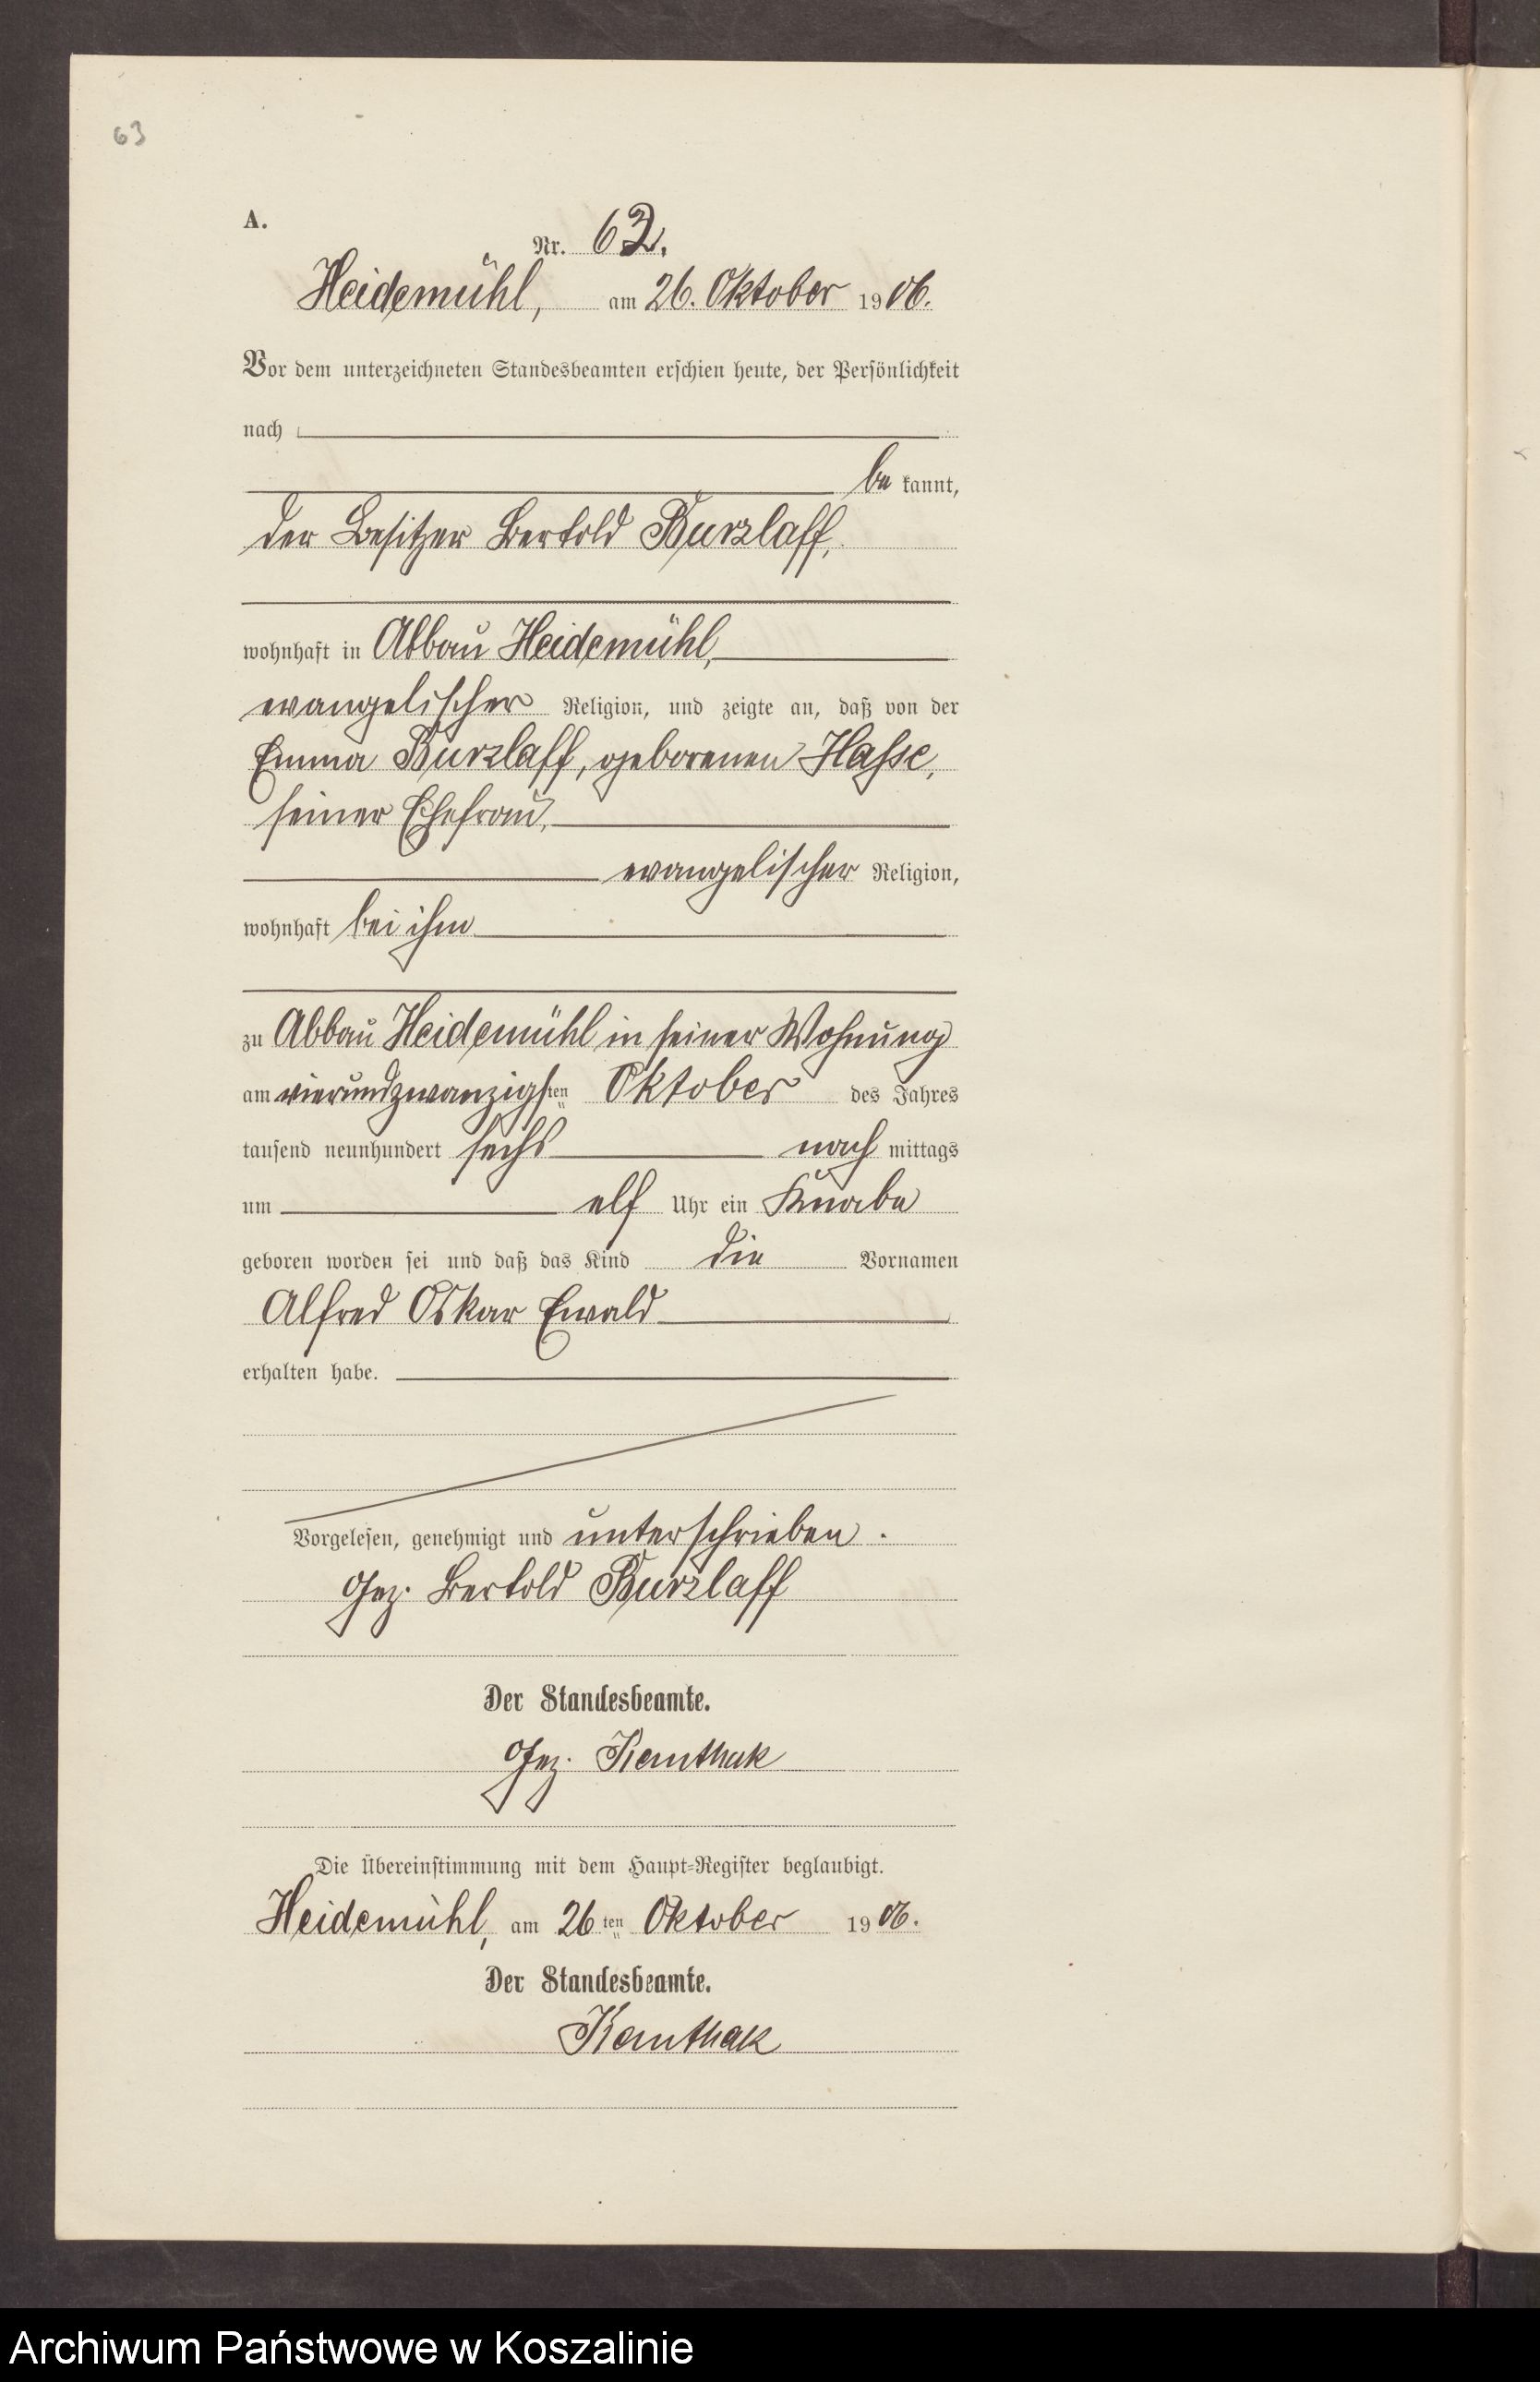 63
A.
Nr. 62.
Heidemühl, am 26. Oktober 1906.
Vor dem unterzeichneten Standesbeamten erschien heute, der Persönlichkeit
nach
be kannt,
der Besitzer Bertold Burzlaff,
wohnhaft in Abbau Heidemühl,
evangelischer Religion, und zeigte an, daß von der
Emma Burzlaff, geborenen Hasse,
seiner Ehefrau,
evangelischer Religion,
wohnhaft bei ihm
zu Abbau Heidemühl in seiner Wohnung
am vierundzwanzigsten Oktober des Jahres
tausend neunhundert sechs nach mittags
um elf Uhr ein Knabe
geboren worden sei und daß das Kind die Vornamen
Alfred Oskar Ewald
erhalten habe.
Vorgelesen, genehmigt und unterschrieben.
Gez. Bertold Burzlaff
Der Standesbeamte.
Gez.
Die Übereinstimmung mit dem Haupt-Register beglaubigt.
Heidemühl, am 26ten Oktober 1906.
Der Standesbeamte.
Archiwum Państwowe w Koszalinie